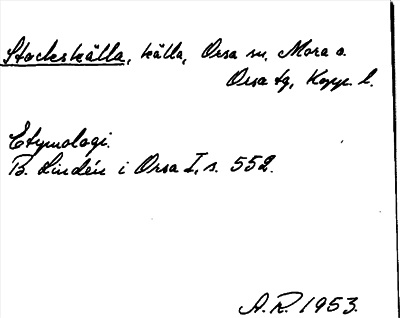 Stackskälla, källa, Orsa sn, Mora o.
Orsa tg, Kopp. l.
Etymologi.
B. Lindén i Orsa I, s. 552.
A.R. 1953.